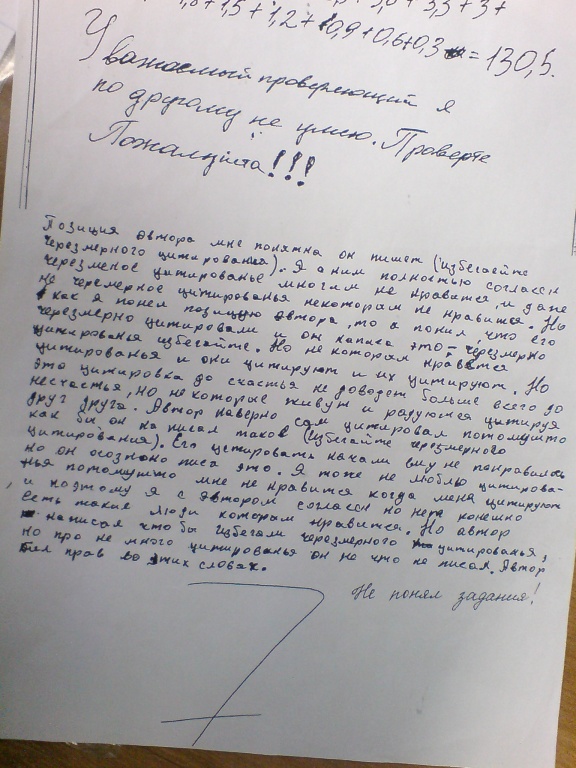 +1,5+1,2+0,9+0,6+0,3 = 130,5.
Уважаемый проверяющий я
по другому не умею. Проверте
Пожалуйста!!!
Позиция автора мне понятна он пишет (избегайте
черезмерного цитирования). Я с ним полностью согласен
черезменое цитированье многим не нравится, и даже
не черемерное цитированья некоторам не нравится. Но
как я понел позицую автора, то я понил, что его
черезмерно цитировали и он написа это – черезмерно
цитированья избегайте. Но не которам нравется
цитированья и они цитируют и их цитируют. Но
это цитировка до счастья не доводет больше всего до
несчастья, но не которые живут и радуются цитируя
друг друга. Автор наверно сам цитировал потомушто
как бы он на писал такое (избегайте черезмерного
цитирования). Его цетировать начали ему не понравилось
но он осозноно писа это. Я тоже не люблю цитирова-
нья потомушто мне не нравится когда меня цитируют
, и поэтому я с автором согласен но конешно
есть такие люди которам нравится. Но автор
написал что бы избегали черезмерного цитированья,
но про не много цитированья он не что не писал. Автор
был прав во этих словах.
Не понял задания!
7